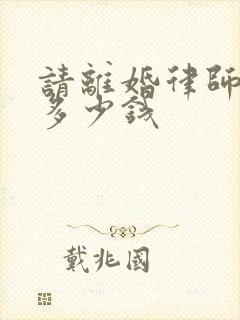 請離婚律師
多少錢
戴兆國